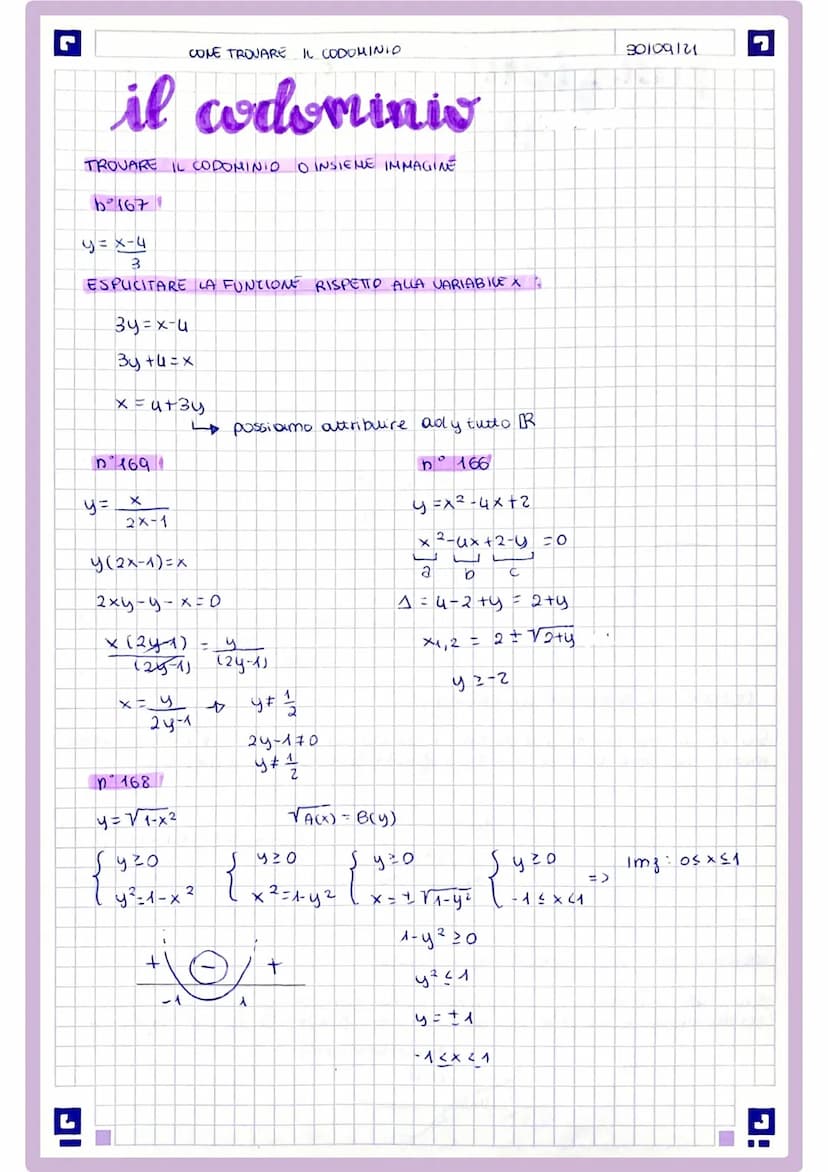 COME TROVARE IL CODOMINIO 30/09/21
il codominio
TROVARE IL CODOMINIO O INSIEME IMMAGINE
n°167
y = x-4/3
ESPLICITARE LA FUNZIONE RISPETTO ALLA VARIABILE x :
3y = x-4
3y+4 = x
x = 4+3y
↳ possiamo attribuire ad y tutto ℝ
n°169
y = x/2x-1
y(2x-1)=x
2xy-y-x=0
x(2y-1)/(2y-1) = y/(2y-1)
x = y/2y-1 → y≠1/2
2y-1≠0
y≠1/2
n° 166
y = x²-4x+2
x²-4x+2-y = 0
a b c
Δ = 4-2+y = 2+y
x1,2 = 2±√2+y
y ≥ -2
n°168
y = √1-x² √A(x) = B(y)
{ y≥0 { y≥0 { y≥0 { y≥0 => Imf : 0≤x≤1
y²=1-x² x²=1-y² x=±√1-y² -1≤x≤1
+ - +
-1 1
1-y² ≥0
y² ≤ 1
y = ±1
-1≤x≤1